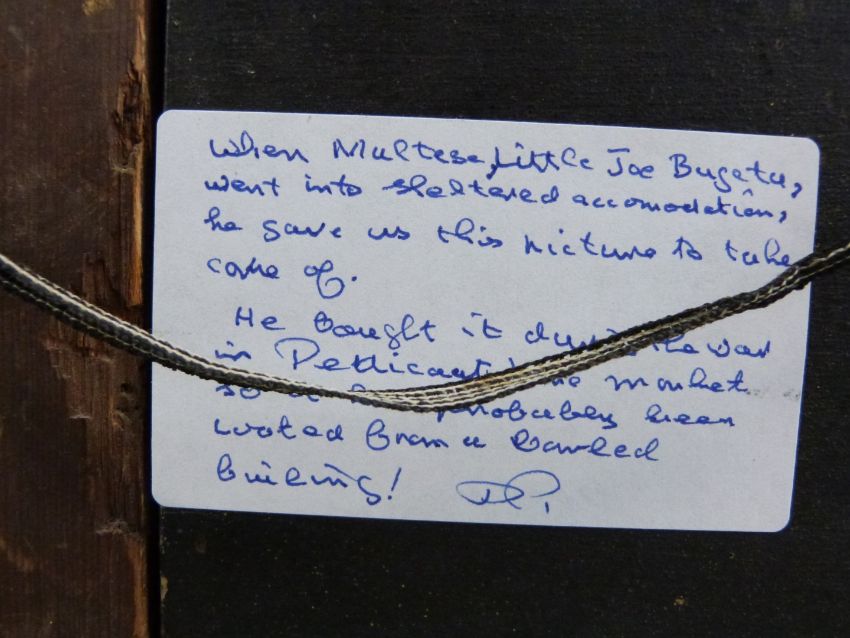 When Maltese, Little Joe Bugeta,
went into sheltered accomodation,
he gave us this picture to take
care of.
He bought it during the war
in Petticoat market
so it probabley been
looted from a bombed
builing!